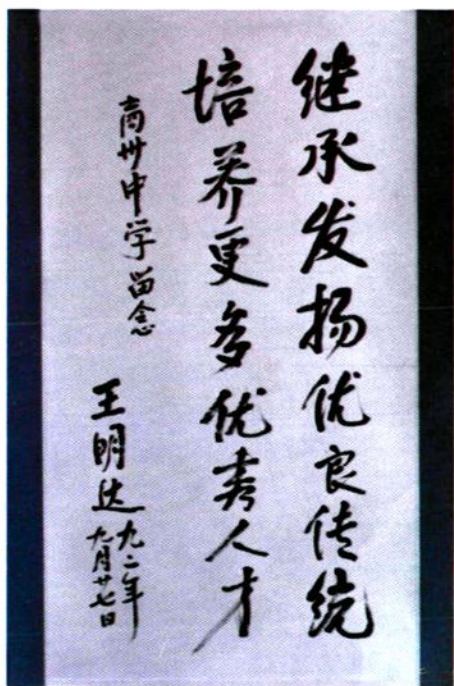 继承发扬优良传统
培养更多优秀人才
商州中学留念
王明达
九二年
九月廿七日